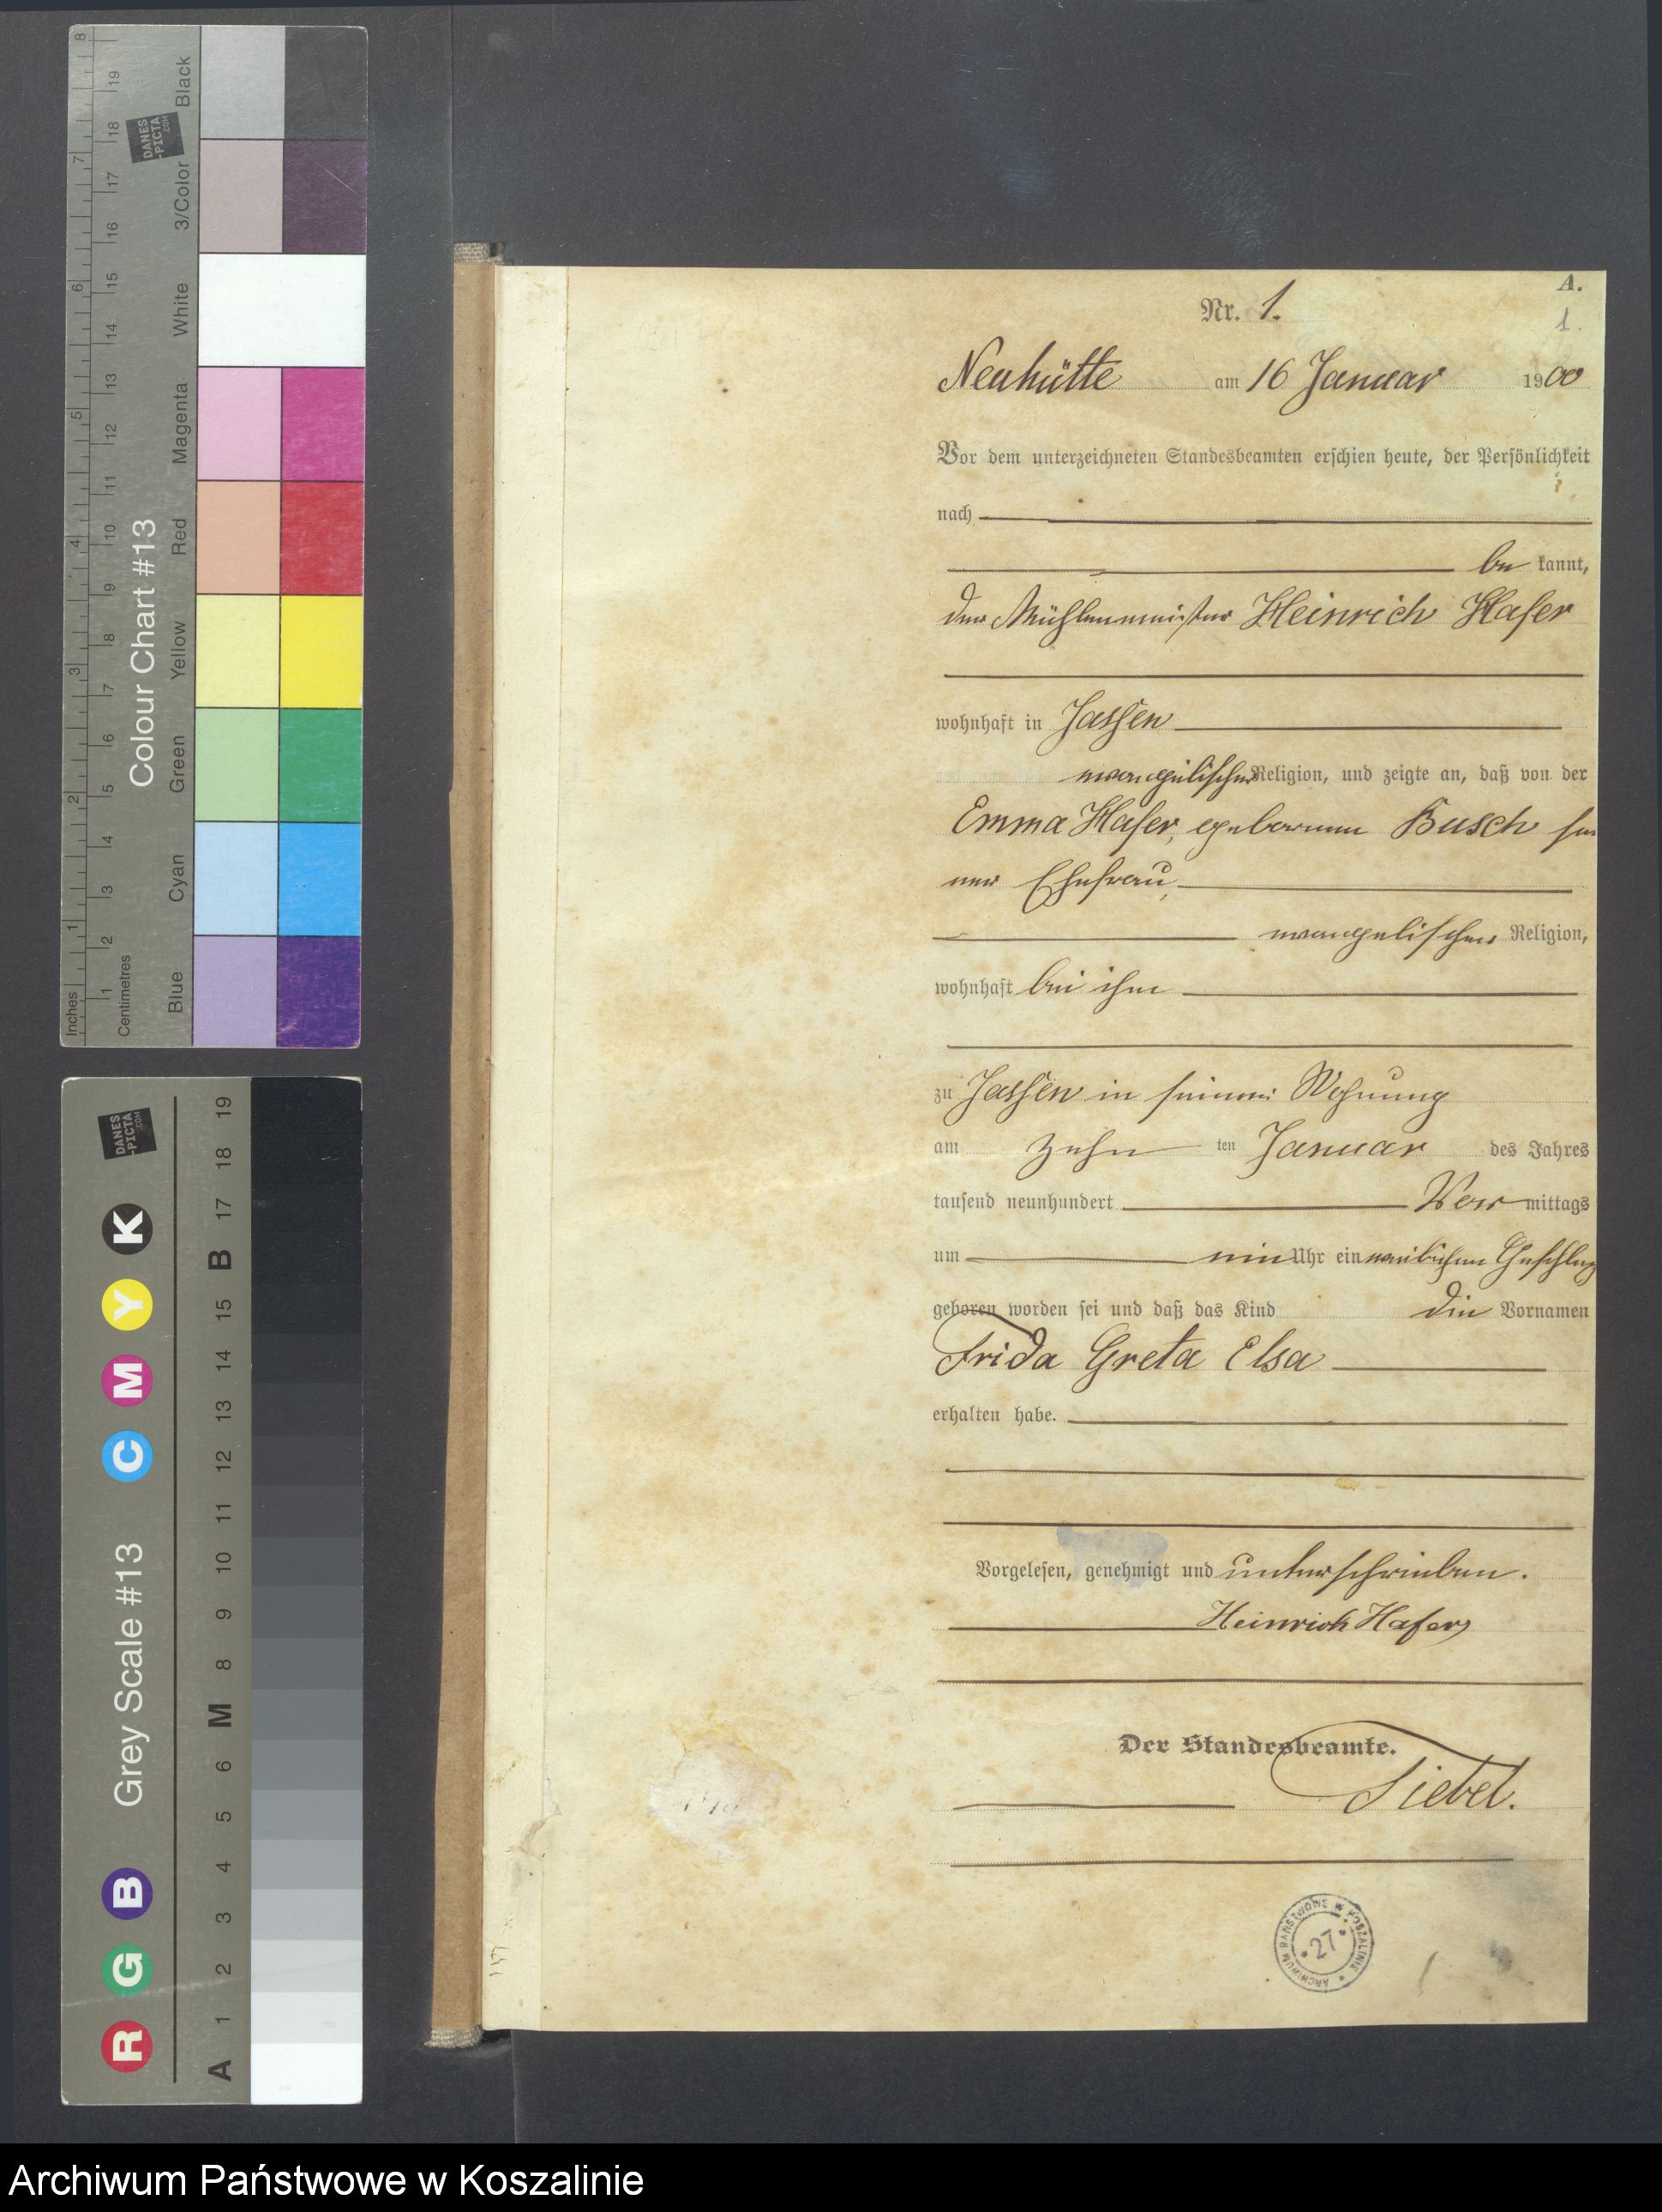 Inches 1 2 3 4 5 6 7 8
Centimetres 1 2 3 4 5 6 7 8 9 10 11 12 13 14 15 16 17 18 19
DANES
-PICTA
.COM
Colour Chart #13
Blue Cyan Green Yellow Red Magenta White 3/Color Black
DANES
-PICTA
.COM
R G B Grey Scale #13 C M Y K
A 1 2 3 4 5 6 M 8 9 10 11 12 13 14 15 B 17 18 19
A.
Nr. 1.
1.
Neuhütte am 16 Januar 1900
Vor dem unterzeichneten Standesbeamten erschien heute, der Persönlichkeit
nach
be kannt,
der Mühlenmeister Heinrich Hafer
wohnhaft in Jassen
evangelischer Religion, und zeigte an, daß von der
Emma Hafer, geborenen Busch sei
ner Ehefrau,
evangelischer Religion,
wohnhaft bei ihm
zu Jassen in seiner Wohnung
am zehn ten Januar des Jahres
tausend neunhundert Vor mittags
um ein Uhr ein weiblichen Geschlecht
geboren worden sei und daß das Kind die Vornamen
Frida Greta Elsa
erhalten habe.
Vorgelesen, genehmigt und unterschrieben.
Heinrich Hafer
Der Standesbeamte.
Siebel.
ARCHIWUM PAŃSTWOWE W KOSZALINIE
27
Archiwum Państwowe w Koszalinie